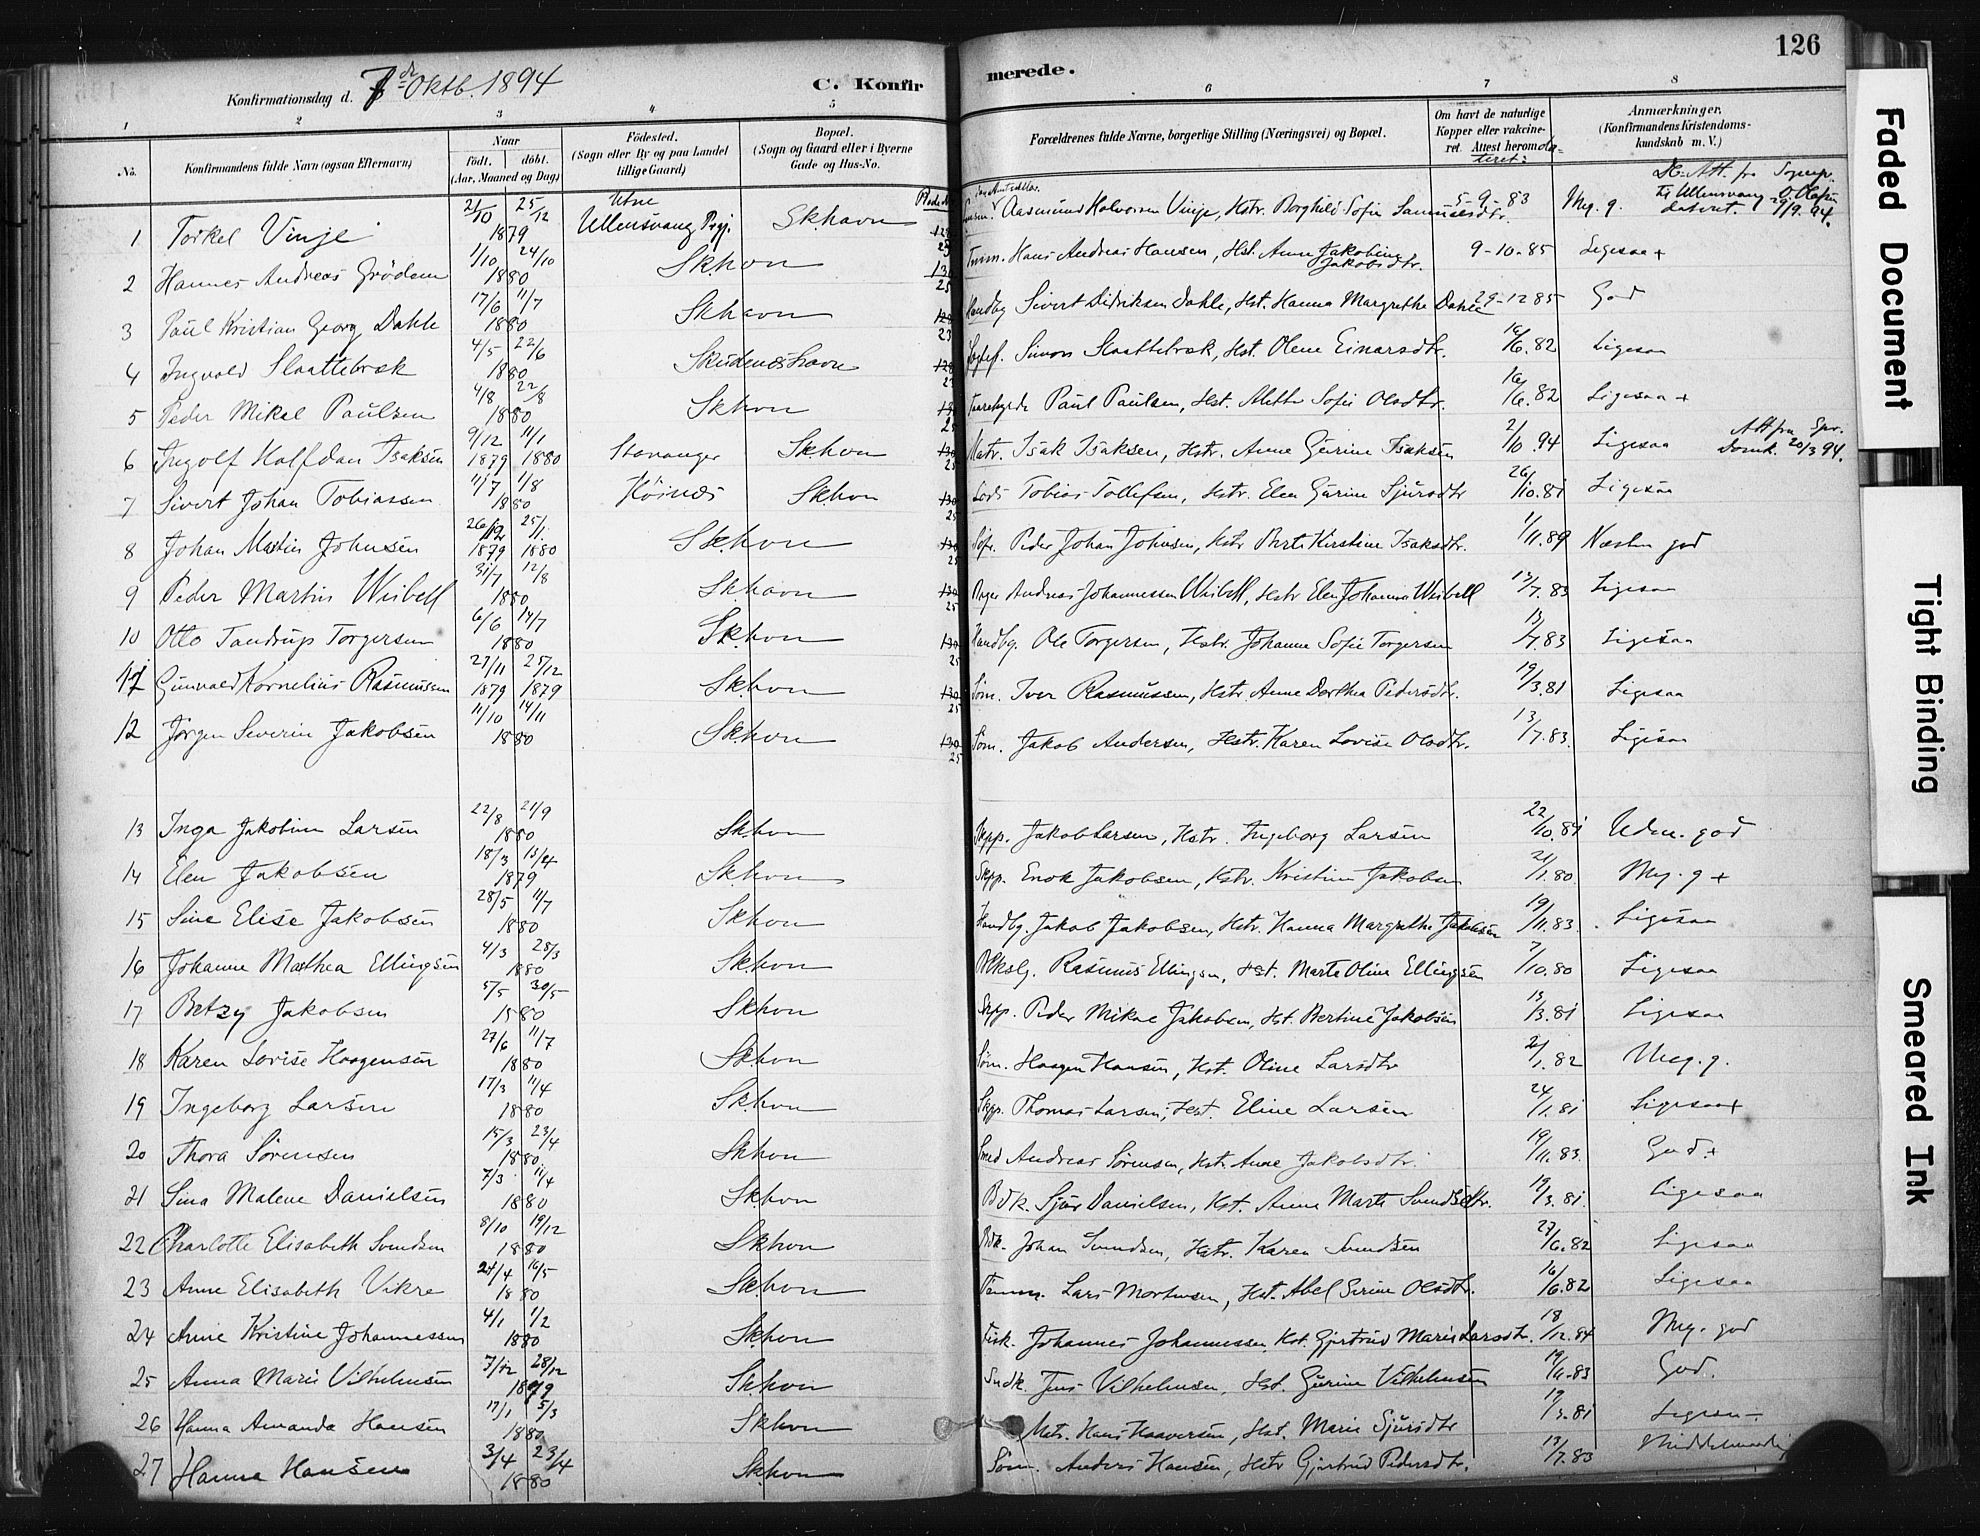 126
Konfirmationsdag d. 7de Oktb. 1894 C. Konfirmerede.
1 2 3 4 5 6 7 8
No. Konfirmandens fulde Navn (ogsaa Efternavn) Naar født. døbt. (Aar, Maaned og Dag) Fødested. (Sogn eller By og paa Landet tillige Gaard) Bopæl. (Sogn og Gaard eller i Byerne Gade og Hus-No. Forældrenes fulde Navne, borgerlige Stilling (Næringsvei) og Bopæl. Om havt de naturlige Kopper eller vakcineret. Attest herom dateret: Anmærkninger. (Konfirmandens Kristendomskundskab m. V.)
1 Torkel Vinje 21/10 25/12 1879 Utne Ullensvang Prgj. Skhavn Aasmund Halvorsen Vinje, Hstr. Borghild Sofie Samuelsdtr. 5-9-83 Meg. g.
2 Hannes Andreas Grødem 1/10 24/10 1880 Skhvn Hans Andreas Hansen, Hst. Anne Jakobine Jakobsdtr. 9-10-85 Ligesaa +
3 Paul Kristian Georg Dahle 17/6 11/7 1880 Skhavn Handbg Sivert Didriksen Dahle, Hst. Hanna Margrethe Dahle 29-12 85 God
4 Ingvald Slaattebræk 4/5 22/6 1880 Skudeneshavn Simon Slaattebræk, Hst. Olene Einarsdtr. 16/6. 82 Ligesaa
5 Peder Mikal Paulsen 4/8 22/8 1880 Skhvn Paul Paulsen, Hst. Alette Sofie Olsdtr. 16/6. 82 Ligesaa +
6 Ingolf Halfdan Isaksen 9/12 1879 11/1 1880 Stavanger Skhvn Matr. Isak Isaksen, Hstr. Anne Gurine Isaksen 2/10. 94 Ligesaa Att fra Spr. Domk. 20/3 94.
7 Sivert Johan Tobiassen 11/7 1/8 1880 Høines Skhvn Lods Tobias Tollefsen, Hstr. Elen Gurine Sjursdtr 26/10. 81 Ligesaa
8 Johan Martin Johnsen 26/12 1879 25/1. 1880 Skhvn Peder Johan Johnsen, Hstr Berte Kirstine Isaksdtr. 1/11. 89 Næsten god
9 Peder Martin Wisbell 31/7 12/8 1880 Skhavn Andreas Johannessen Wisbell, Hstr Elen Johanna Wisbell 13/7. 83 Ligesaa
10 Otto Tandrup Torgersen 6/6 14/7 1880 Skhvn Handbg. Ole Torgersen, Hstr. Johanne Sofie Torgersen 13/7. 83 Ligesaa
11 Gunvald Kornelius Rasmussen 27/11 1879 25/12 1879 Skhvn Søm. Iver Rasmussen, Hstr Anne Dorthea Pedersdtr. 19/3. 81 Ligesaa
12 Jørgen Severin Jakobsen 11/10 14/11 1880 Skhvn Søm. Jakob Andersen, Hstr. Karen Lovise Olsdtr. 13/7. 83. Ligesaa
13 Inga Jakobine Larsen 22/8 21/9 1880 Skhvn Skpp. Jakob Larsen, Hstr. Ingeborg Larsen 22/10. 81 Udm. god
14 Elen Jakobsen 18/3 13/4 1879 Skhvn Skpp. Enok Jakobsen, Hstr. Kristine Jakobsen 21/1. 80. Meg. g +
15 Sine Elise Jakobsen 28/5 11/7 1880 Skhvn Handbg. Jakob Jakobsen, Hstr. Hanna Margrethe Jakobsen 19/11. 83. Ligesaa
16 Johanne Mathea Ellingsen 4/3 28/3 1880 Skhvn Rasmus Ellingsen, Hst. Marte Oline Ellingsen 7/10. 80 Ligesaa
17 Betzy Jakobsen 5/5 30/5 1880 Skhvn Skpp. Peder Mikal Jakobsen, Hst. Bertine Jakobsen 13/3. 81 Ligesaa
18 Karen Lovise Haagensen 27/6 11/7 1880 Skhvn Søm. Haagen Hansen, Hst. Oline Larsdtr 21/1. 82 Meg. g.
19 Ingeborg Larsen 17/3 11/4 1880 Skhvn Skpp. Thomas Larsen, Hst. Eline Larsen 24/1. 81 Ligesaa +
20 Thora Sørensen 15/3 23/4 1880 Skhvn Smed Andreas Sørensen, Hstr. Anne Jakobsdtr. 19/11. 83. God +
21 Sina Malene Danielsen 7/3 11/4 1880 Skhvn Bdk. Sjur Danielsen, Hst. Anne Marte Svendsdtr. 19/3. 81 Ligesaa
22 Charlotte Elisabeth Svendsen 8/10 19/12 1880 Skhvn Bdk. Johan Svendsen, Hstr. Karen Svendsen 27/6. 82 Ligesaa
23 Anne Elisabeth Vikre 24/4 16/5 1880 Skhvn Tømm. Lars Mortensen, Hst. Abel Serine Olsdtr. 16/6. 82 Ligesaa
24 Anne Kristine Johannessen 4/1 1/2 1880 Skhvn Fisk. Johannes Johannessen Hst. Gjertrud Marie Larsdtr. 18/12. 84 Meg. god
25 Anna Marie Vilhelmsen 7/12 28/12 1879 Skhvn Sndk. Jens Vilhelmsen, Hst. Gurine Vilhelmsen 19/11. 83 God.
26 Hanna Amanda Hansen 17/1 5/3 1880 Skhvn Matr. Hans Haaversen, Hst. Marie Sjursdtr 19/3. 81 Ligesaa
27 Hanna Hansen 3/4 23/4 1880 Skhvn Søm. Anders Hansen, Hstr Gjertrud Pedersdtr. 13/7. 83 Middelmaadig
Faded Document
Tight Binding
Smeared Ink